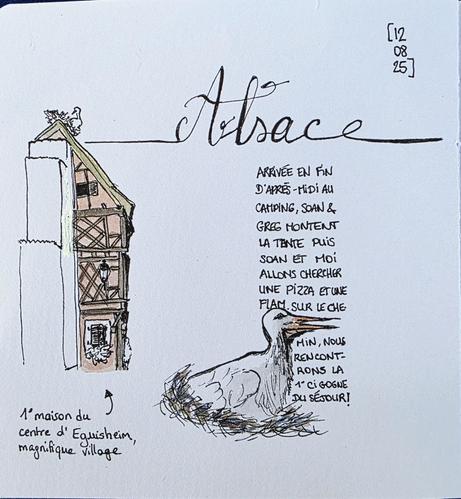 [12
08
25]
Alsace
ARRIVÉE EN FIN
D'APRÈS-MIDI AU
CAMPING, SOAN &
GREG MONTENT
LA TENTE PUIS
SOAN ET MOI
ALLONS CHERCHER
UNE PIZZA ET UNE
FLAM. SUR LE CHE-
MIN, NOUS
RENCONT-
RONS LA
1° CIGOGNE
DU SÉJOUR!
1° maison du
centre d'Eguisheim,
magnifique village